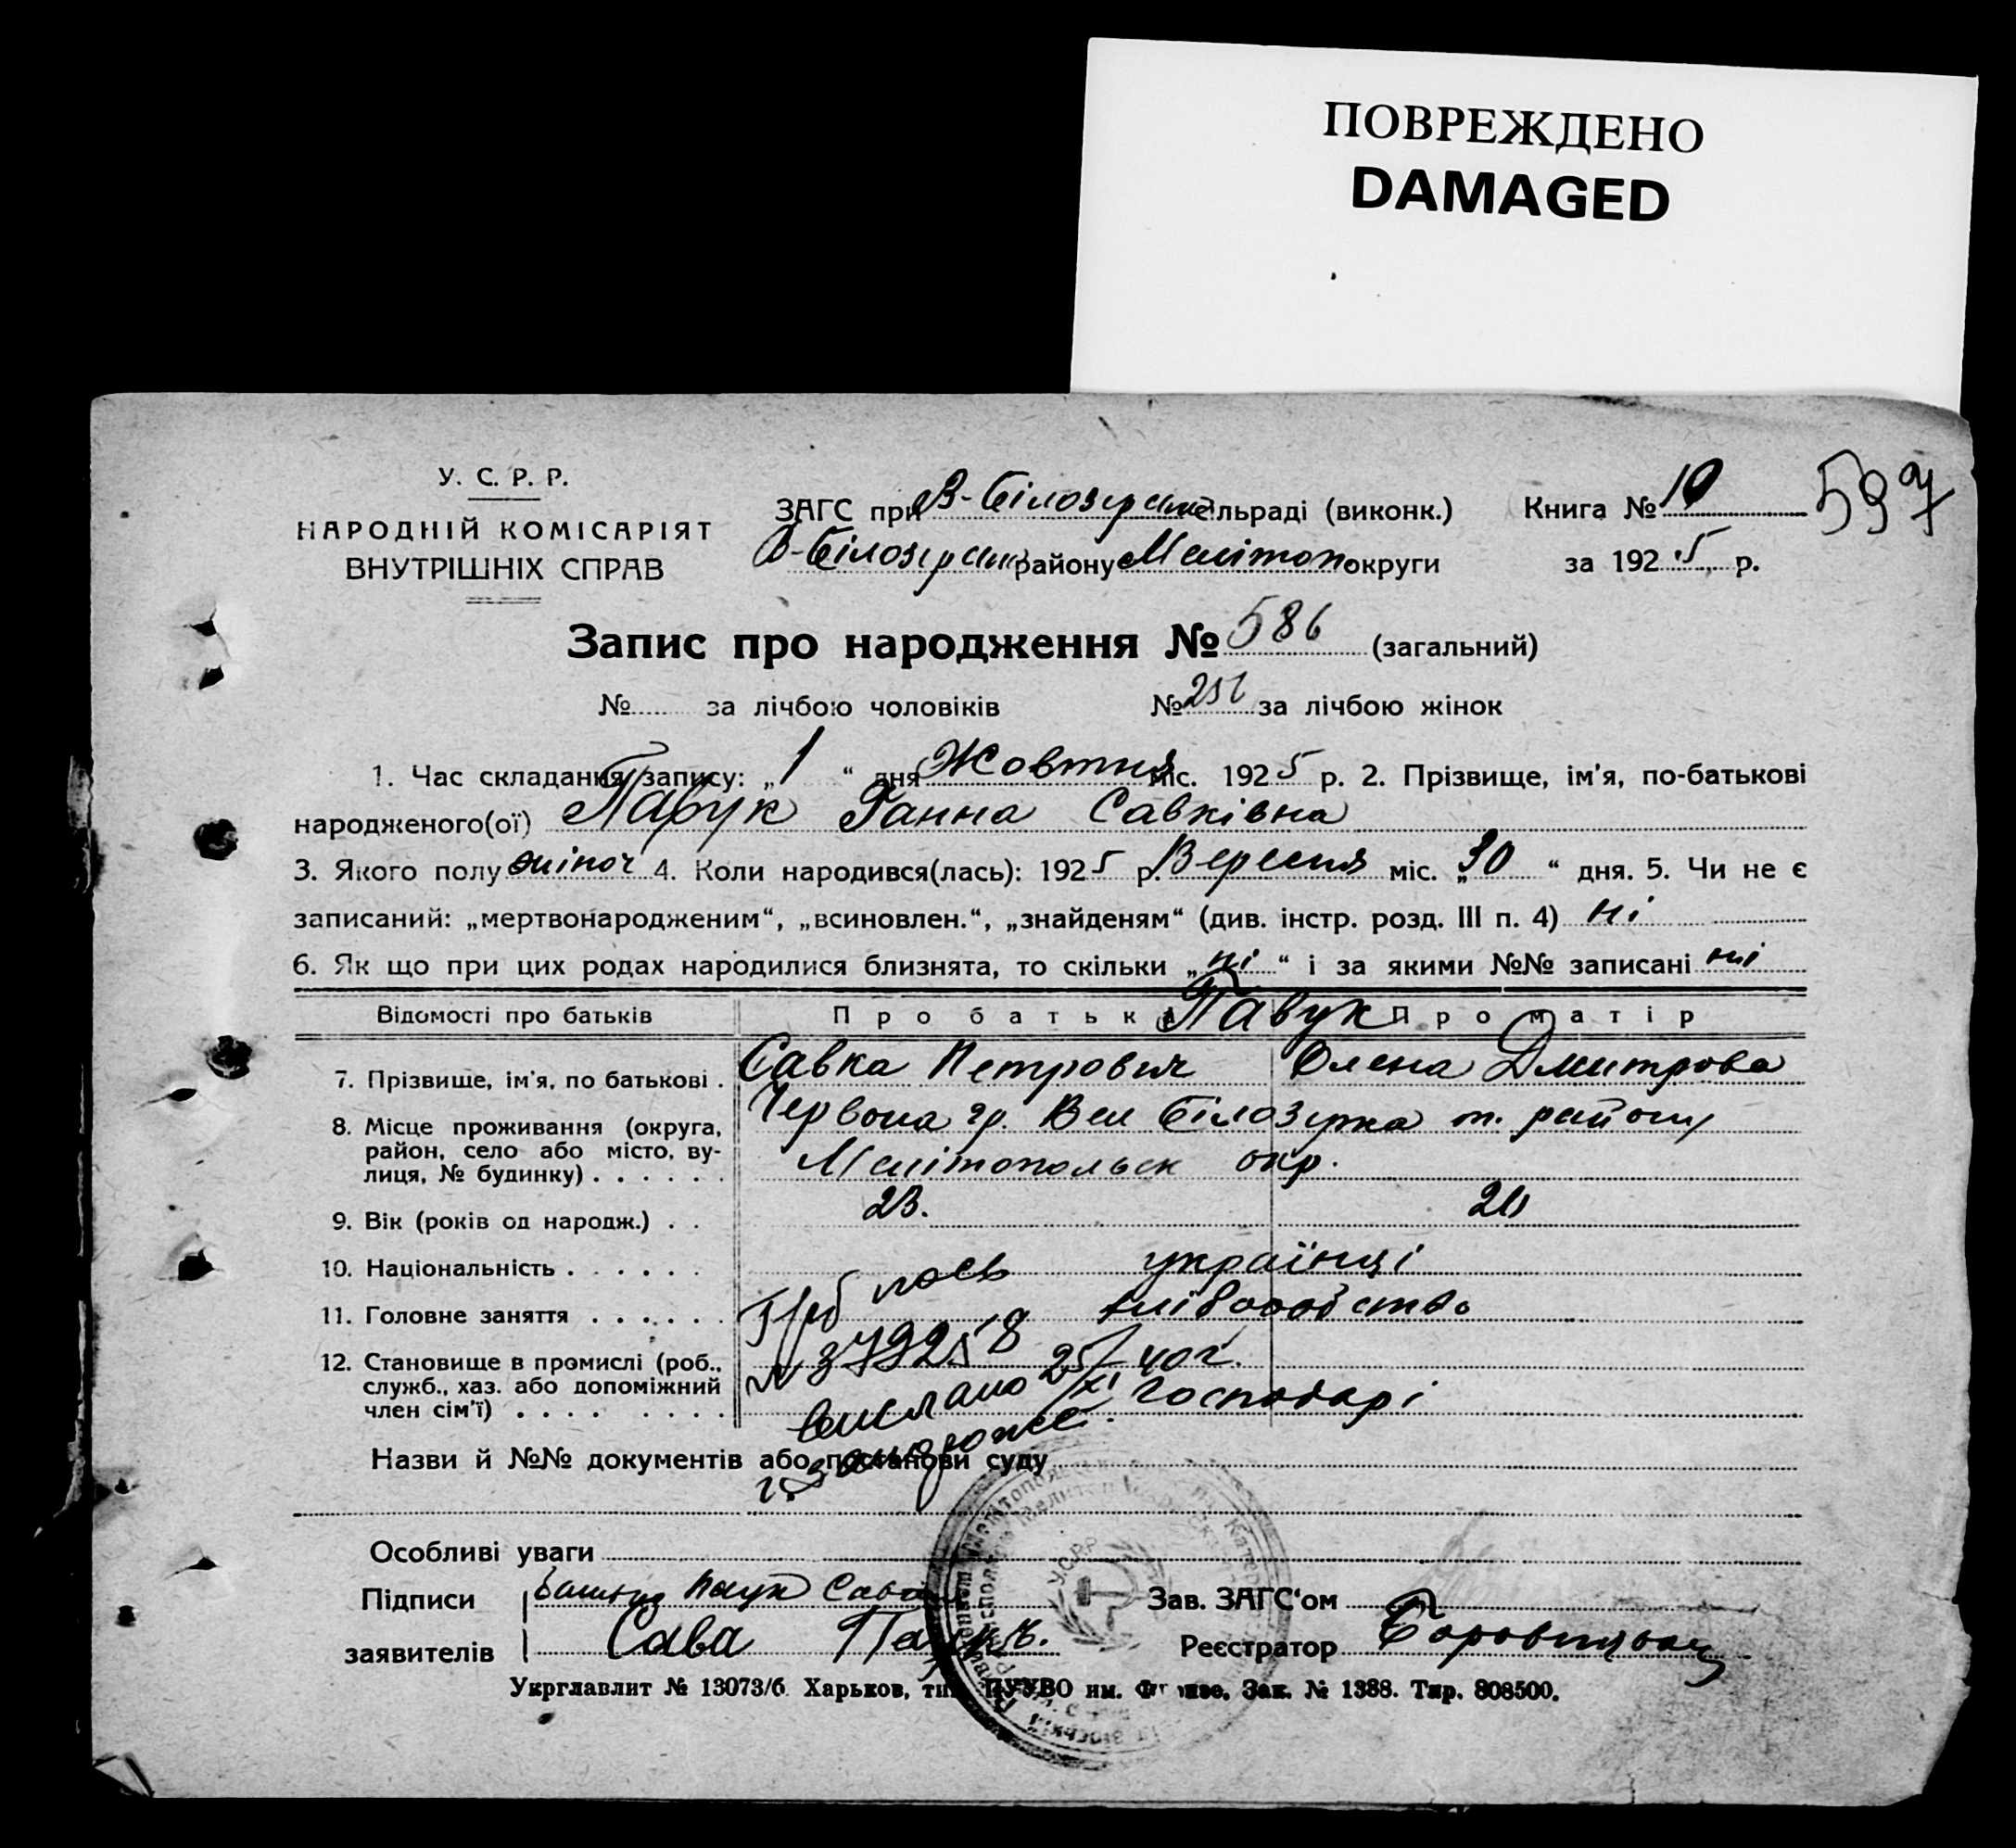 ПОВРЕЖДЕНО
DAMAGED
У. С. Р. Р.
НАРОДНІЙ КОМІСАРІЯТ
ВНУТРІШНІХ СПРАВ
ЗАГС при В-Білозерськ сільраді (виконк.)
В-Білозерськ району Мелітоп округи
Книга № 10
597
за 1925 р.
Запис про народження № 586 (загальний)
№ за лічбою чоловіків № за лічбою жінок
1. Час складання запису: „1“ дня Жовтня міс. 1925 р. 2. Прізвище, ім'я, по-батькові
народженого(ої) Павук Ганна Савківна
3. Якого полу жіноч 4. Коли народився(лась): 1925 р. Вересня міс. „30“ дня. 5. Чи не є
записаний: „мертвонародженим“, „всиновлен.“, „знайденям“ (див. інстр. розд. III п. 4) ні
6. Як що при цих родах народилися близнята, то скільки „ні“ і за якими №№ записані ні
Відомості про батьків Про батька Павук Про матір
7. Прізвище, ім'я, по батькові . Савка Петрович Олена Дмитрова
8. Місце проживання (округа, Червона гр. Вел Білозерка т. району
район, село або місто, ву-
лиця, № будинку) . . . . . . Мелітопольськ окр.
9. Вік (років од народж.) . . 23. 20
10. Національність . . . . . . українці
11. Головне заняття . . . . . . хліборобство
12. Становище в промислі (роб.,
служб., хаз. або допоміжний
член сім'ї) . . . . . . . . господарі
№ 379258
вислано 25/XI 40 г.
г. Запорожье
Назви й №№ документів або постанови суду
Особливі уваги
Підписи Павук Сава
заявителів Сава Павукъ.
Зав. ЗАГС'ом
Реєстратор
У.С.Р.Р.
Укрглавлит № 13073/б. Харьков, тип. ПУУВО им. Фрунзе, Зак. № 1388. Тир. 808500.